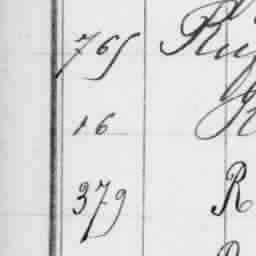 765
16
379 R